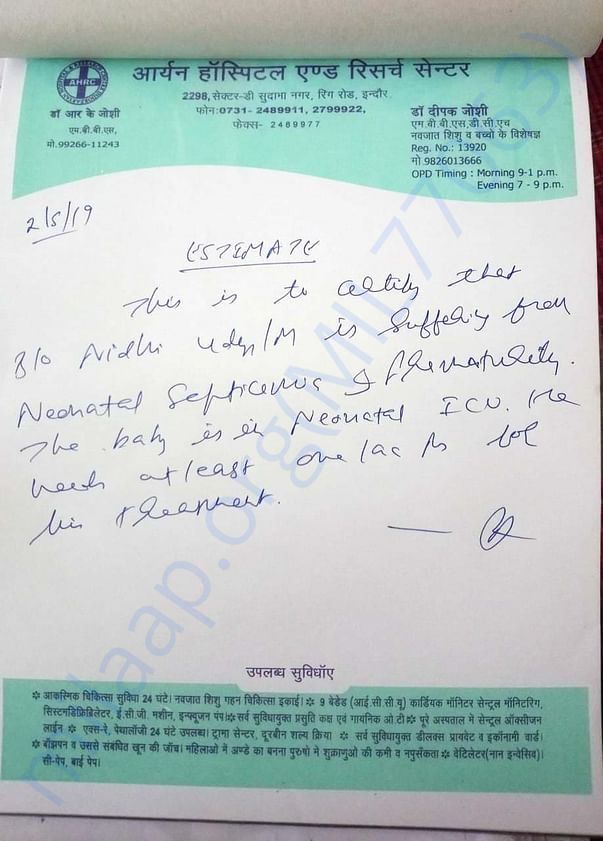 AHRC
आर्यन हॉस्पिटल एण्ड रिसर्च सेन्टर
2298, सेक्टर-डी सुदामा नगर, रिंग रोड, इन्दौर.
फोन:0731- 2489911, 2799922,
फेक्स- 2489977
डॉ आर के जोशी
एम.बी.बी.एस,
मो.99266-11243
डॉ दीपक जोशी
एम.बी.बी.एस,डी.सी.एच
नवजात शिशु व बच्चो के विशेषज्ञ
Reg. No.: 13920
मो 9826013666
OPD Timing : Morning 9-1 p.m.
Evening 7 - 9 p.m.
2/5/19
ESTIMATE
This is to certify that
B/o Nidhi is suffering from
Neonatal Septicemia & Prematurity.
The baby is in Neonatal ICU. He
needs at least one lac Rs for
his treatment.
उपलब्ध सुविधाॅए
❖ आकस्मिक चिकित्सा सुविधा 24 घंटे। नवजात शिशु गहन चिकित्सा इकाई। ❖ 9 बेडेड (आई.सी.सी.यू) कार्डियक मॉनिटर सेन्ट्रल मॉनिटरिंग,
सिस्टमडिफ्रिब्रिलेटर, ई.सी.जी. मशीन, इन्फ्यूजन पंप।❖ सर्व सुविधायुक्त प्रसुति कक्ष एवं गायनिक ओ.टी❖ पूरे अस्पताल मे सेन्ट्रल ऑक्सीजन
लाईन ❖ एक्स-रे, पेथालॉजी 24 घण्टे उपलब्ध। ट्रामा सेन्टर, दूरबीन शल्य क्रिया ❖ सर्व सुविधायुक्त डीलक्स प्रायवेट व इकॉनामी वार्ड।
❖ बाँझपन व उससे संबंधित खून की जाँच। महिलाओ मे अण्डे का बनना पुरुषो मे शुक्राणुओ की कमी व नपुसंकता ❖ वेटिलेटर(नान इन्वेसिव)।
सी-पेप, बाई पेप।
milaap.org(MIL77063)